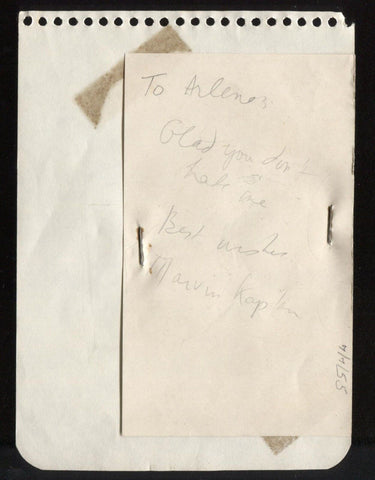 To Arlene:
Glad you don't
hate me
Best wishes
Marvin Kaplan
4/4/55